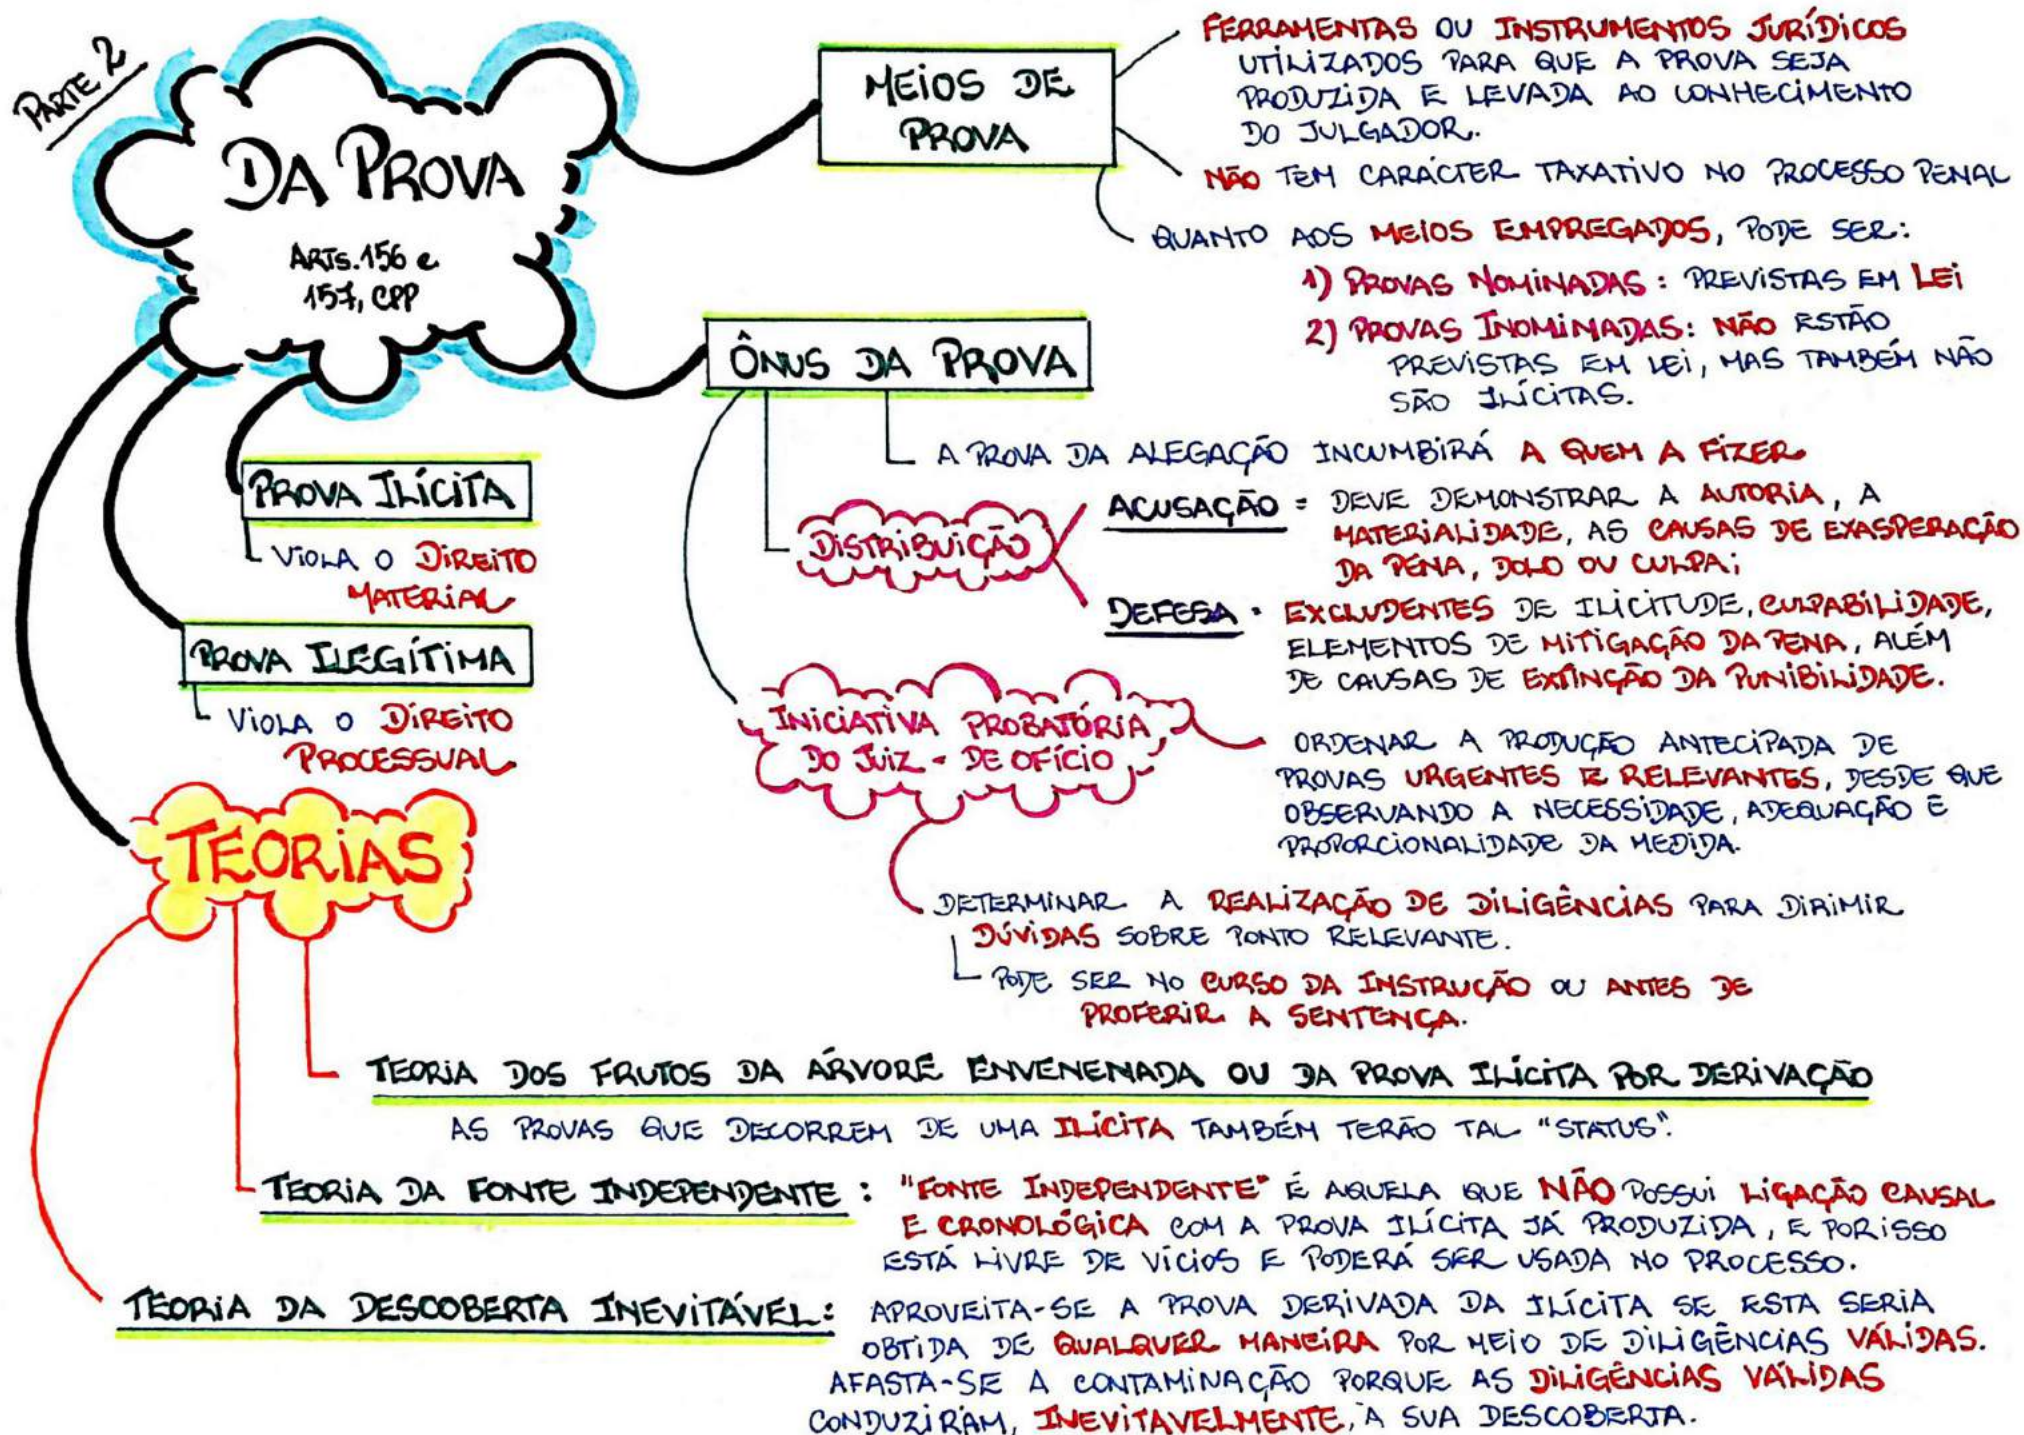 PARTE 2
DA PROVA
ARTs. 156 e
157, CPP
MEIOS DE
PROVA
FERRAMENTAS OU INSTRUMENTOS JURÍDICOS
UTILIZADOS PARA QUE A PROVA SEJA
PRODUZIDA E LEVADA AO CONHECIMENTO
DO JULGADOR.
NÃO TEM CARÁCTER TAXATIVO NO PROCESSO PENAL
QUANTO AOS MEIOS EMPREGADOS, PODE SER:
1) PROVAS NOMINADAS: PREVISTAS EM LEI
2) PROVAS INOMINADAS: NÃO ESTÃO
PREVISTAS EM LEI, MAS TAMBÉM NÃO
SÃO ILÍCITAS.
ÔNUS DA PROVA
A PROVA DA ALEGAÇÃO INCUMBIRÁ A QUEM A FIZER
DISTRIBUIÇÃO
ACUSAÇÃO = DEVE DEMONSTRAR A AUTORIA, A
MATERIALIDADE, AS CAUSAS DE EXASPERAÇÃO
DA PENA, DOLO OU CULPA;
DEFESA = EXCLUDENTES DE ILICITUDE, CULPABILIDADE,
ELEMENTOS DE MITIGAÇÃO DA PENA, ALÉM
DE CAUSAS DE EXTINÇÃO DA PUNIBILIDADE.
INICIATIVA PROBATÓRIA
DO JUIZ - DE OFÍCIO
ORDENAR A PRODUÇÃO ANTECIPADA DE
PROVAS URGENTES E RELEVANTES, DESDE QUE
OBSERVANDO A NECESSIDADE, ADEQUAÇÃO E
PROPORCIONALIDADE DA MEDIDA.
DETERMINAR A REALIZAÇÃO DE DILIGÊNCIAS PARA DIRIMIR
DÚVIDAS SOBRE PONTO RELEVANTE.
PODE SER NO CURSO DA INSTRUÇÃO OU ANTES DE
PROFERIR A SENTENÇA.
PROVA ILÍCITA
VIOLA O DIREITO
MATERIAL
PROVA ILEGÍTIMA
VIOLA O DIREITO
PROCESSUAL
TEORIAS
TEORIA DOS FRUTOS DA ÁRVORE ENVENENADA OU DA PROVA ILÍCITA POR DERIVAÇÃO
AS PROVAS QUE DECORREM DE UMA ILÍCITA TAMBÉM TERÃO TAL "STATUS".
TEORIA DA FONTE INDEPENDENTE: "FONTE INDEPENDENTE" É AQUELA QUE NÃO POSSUI LIGAÇÃO CAUSAL
E CRONOLÓGICA COM A PROVA ILÍCITA JÁ PRODUZIDA, E POR ISSO
ESTÁ LIVRE DE VÍCIOS E PODERÁ SER USADA NO PROCESSO.
TEORIA DA DESCOBERTA INEVITÁVEL: APROVEITA-SE A PROVA DERIVADA DA ILÍCITA SE ESTA SERIA
OBTIDA DE QUALQUER MANEIRA POR MEIO DE DILIGÊNCIAS VÁLIDAS.
AFASTA-SE A CONTAMINAÇÃO PORQUE AS DILIGÊNCIAS VÁLIDAS
CONDUZIRAM, INEVITAVELMENTE, À SUA DESCOBERTA.